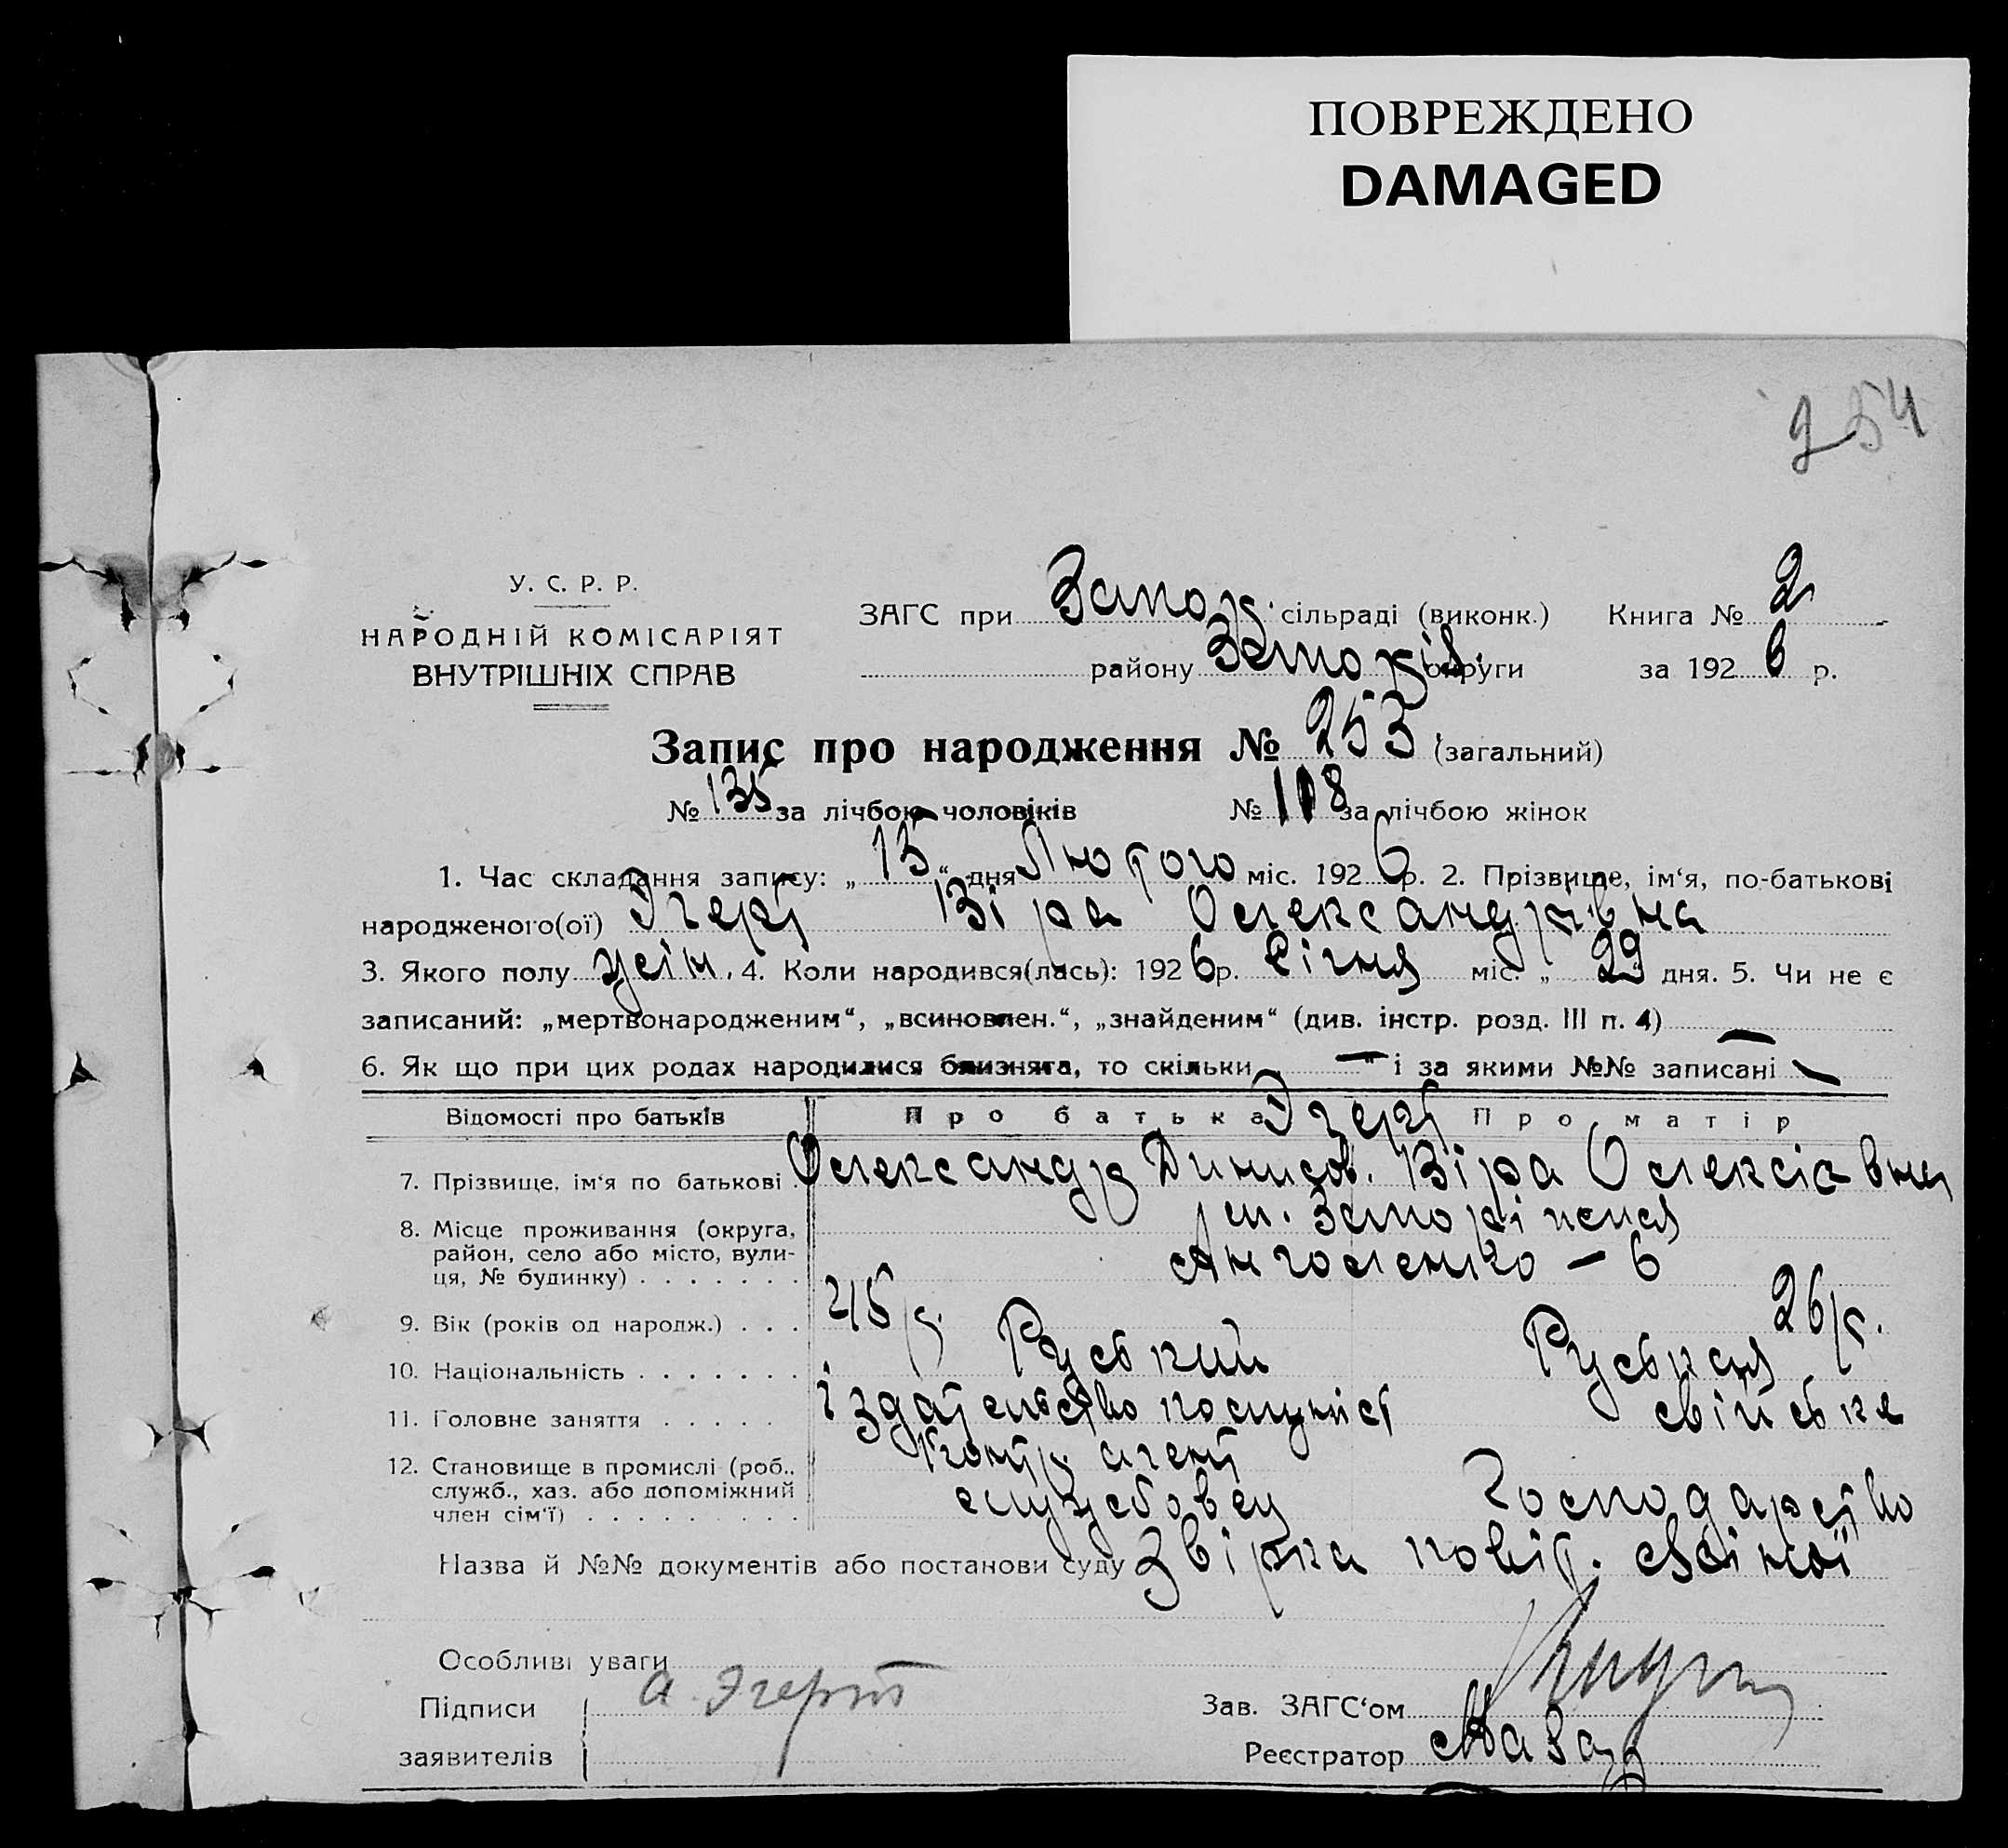 ПОВРЕЖДЕНО
DAMAGED
254
У. С. Р. Р.
НАРОДНІЙ КОМІСАРІЯТ
ВНУТРІШНІХ СПРАВ
ЗАГС при Запор. сільраді (виконк.) Книга № 2
району Запоріз. округи за 1926 р.
Запис про народження № 253 (загальний)
№ 135 за лічбою чоловіків № 118 за лічбою жінок
1. Час складання запису: „15“ дня Лютого міс. 1926 р. 2. Прізвище, ім‘я, по-батькові
народженого(ої) Эгерт Віра Олександрівна
3. Якого полу жін. 4. Коли народився(лась): 1926 р. Січня міс. „ 29 дня. 5. Чи не є
записаний: „мертвонародженим“, „всиновлен.“, „знайденим“ (див. інстр. розд. III п. 4) —
6. Як що при цих родах народилися близнята, то скільки „ —“ і за якими №№ записані —
Відомості про батьків Про батька Эгерт Про матір
7. Прізвище, ім‘я по батькові Олександр Динисов. Віра Олексіавна
8. Місце проживання (округа, район, село або місто, вулиця, № будинку) м. Запоріжжя
Анголенко – 6
9. Вік (років од народж.) 45 р. 26 р.
10. Національність Руський Руськая
11. Головне заняття іздательство комуніст свійська
контр. агент
12. Становище в промислі (роб., служб., хаз. або допоміжний член сім‘ї) службовец Господарство
Назва й №№ документів або постанови суду Звірка повід.
Особливі уваги
Підписи заявителів А. Эгерт
Зав. ЗАГС‘ом
Реєстратор